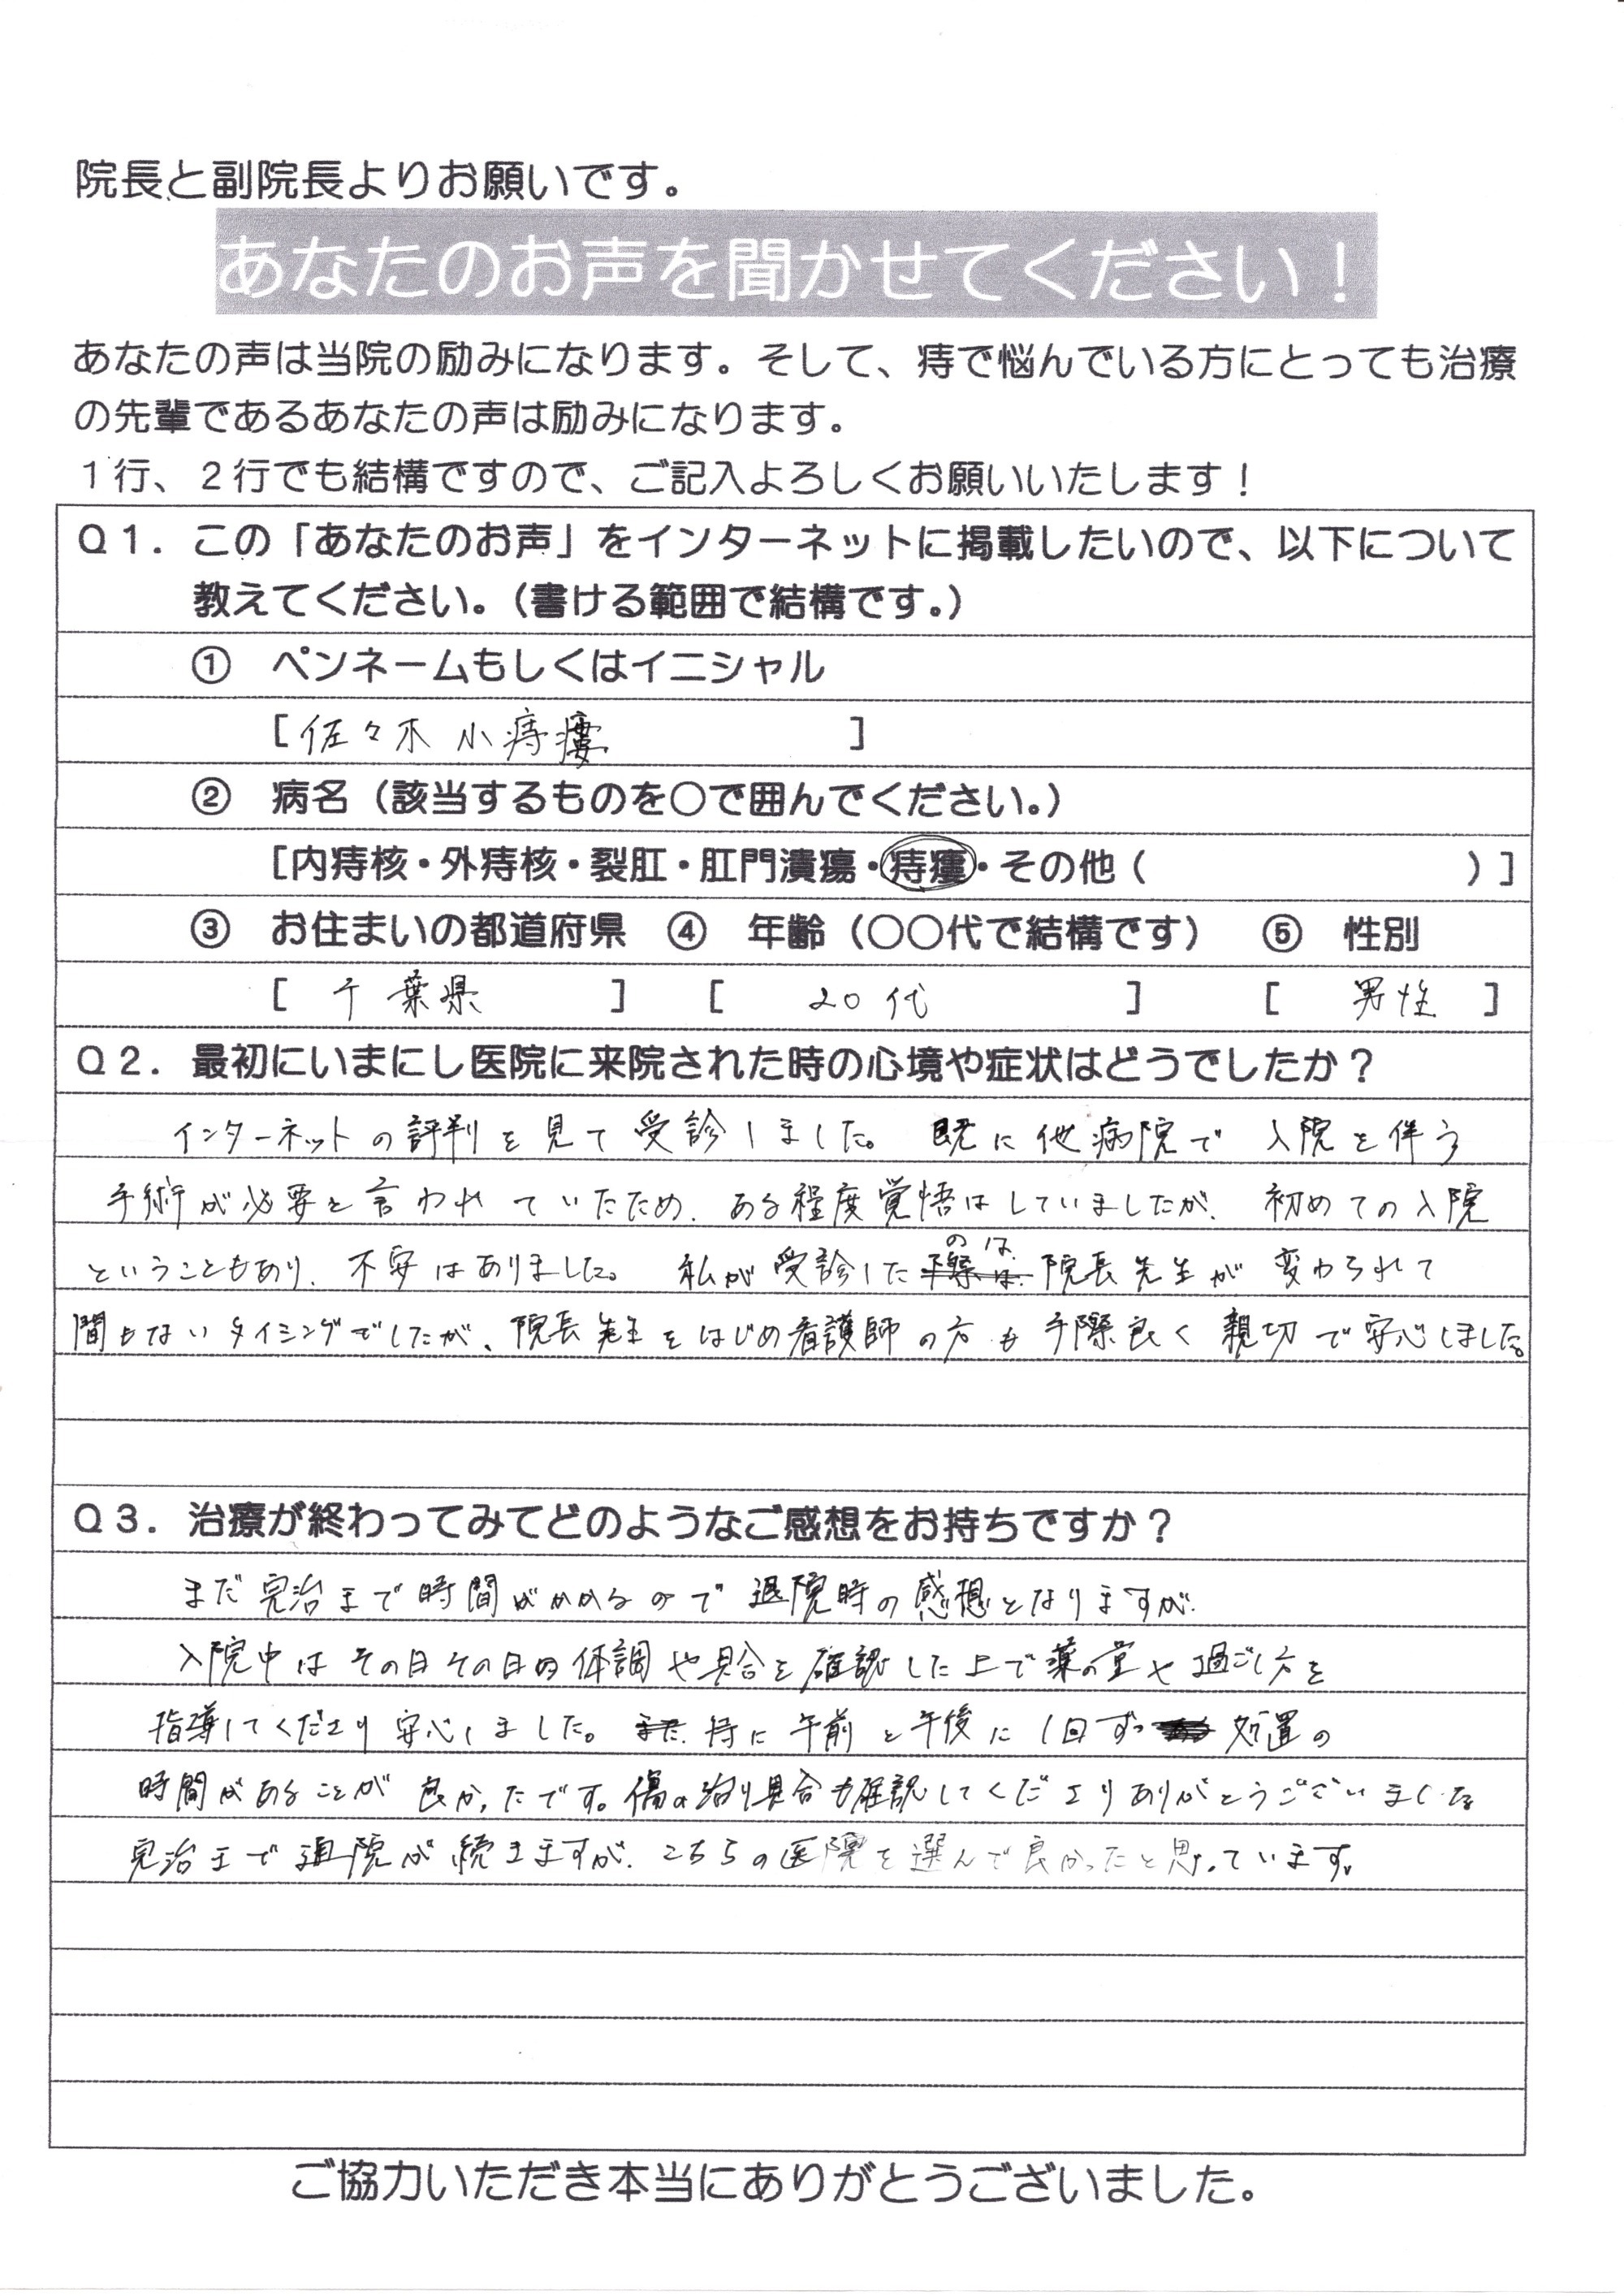 院長と副院長よりお願いです。
あなたのお声を聞かせてください！
あなたの声は当院の励みになります。そして、痔で悩んでいる方にとっても治療
の先輩であるあなたの声は励みになります。
１行、２行でも結構ですので、ご記入よろしくお願いいたします！
Ｑ１．この「あなたのお声」をインターネットに掲載したいので、以下について
教えてください。（書ける範囲で結構です。）
① ペンネームもしくはイニシャル
[佐々木 小痔瘻 ]
② 病名（該当するものを○で囲んでください。）
[内痔核・外痔核・裂肛・肛門潰瘍・痔瘻・その他（ ）]
③ お住まいの都道府県 ④ 年齢（○○代で結構です） ⑤ 性別
[ 千葉県 ] [ 20代 ] [ 男性 ]
Ｑ２．最初にいまにし医院に来院された時の心境や症状はどうでしたか？
インターネットの評判を見て受診しました。既に他病院で入院を伴う
手術が必要と言われていたため、ある程度覚悟はしていましたが、初めての入院
ということもあり、不安はありました。私が受診したのは、院長先生が変わられて
間もないタイミングでしたが、院長先生をはじめ看護師の方も手際良く親切で安心しました。
Ｑ３．治療が終わってみてどのようなご感想をお持ちですか？
まだ完治まで時間がかかるので退院時の感想となりますが、
入院中はその日その日の体調や具合を確認した上で薬の量や過ごし方を
指導してくださり安心しました。また、特に午前と午後に1回ずつ処置の
時間があることが良かったです。傷の治り具合も確認してくださりありがとうございました
完治まで通院が続きますが、こちらの医院を選んで良かったと思っています。
ご協力いただき本当にありがとうございました。